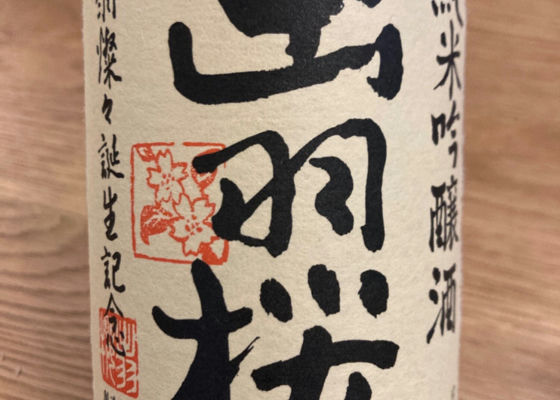 純米吟醸酒
出羽桜
燦々誕生記念